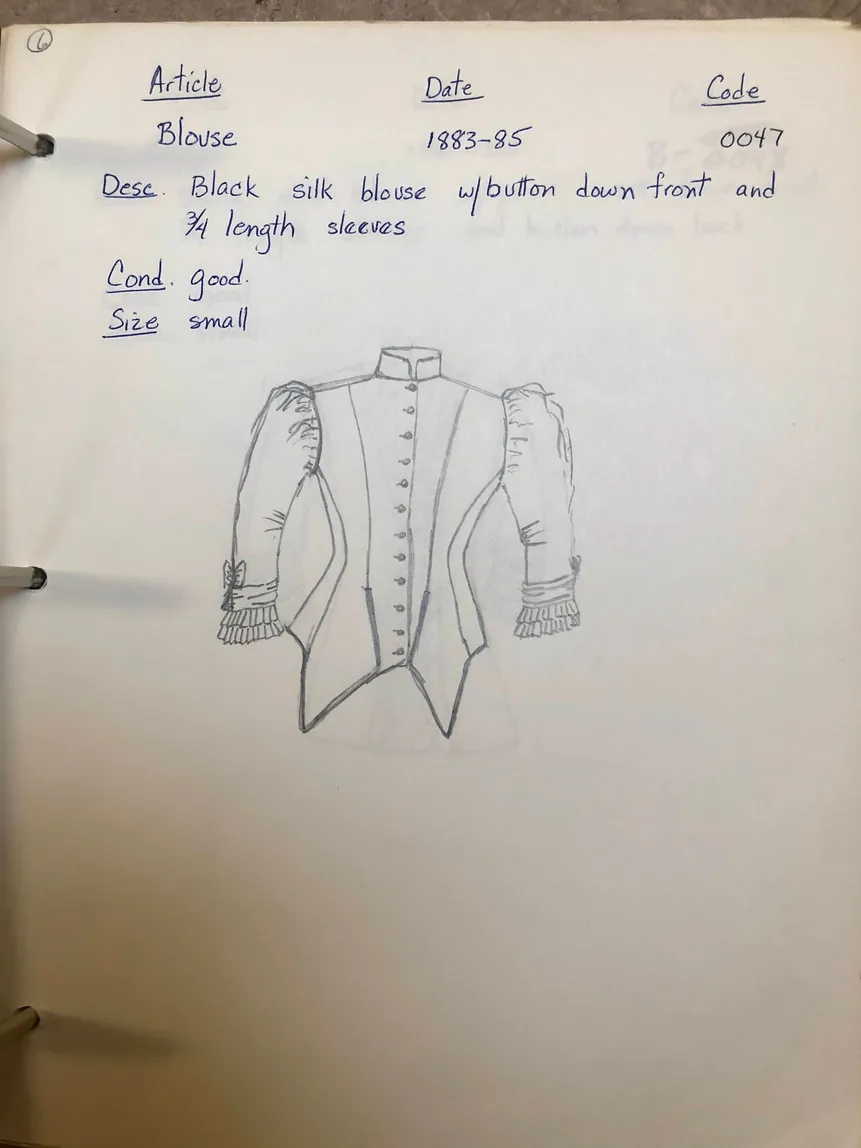 6
Article Date Code
Blouse 1883-85 0047
Desc. Black silk blouse w/button down front and
3/4 length sleeves
Cond. good.
Size small